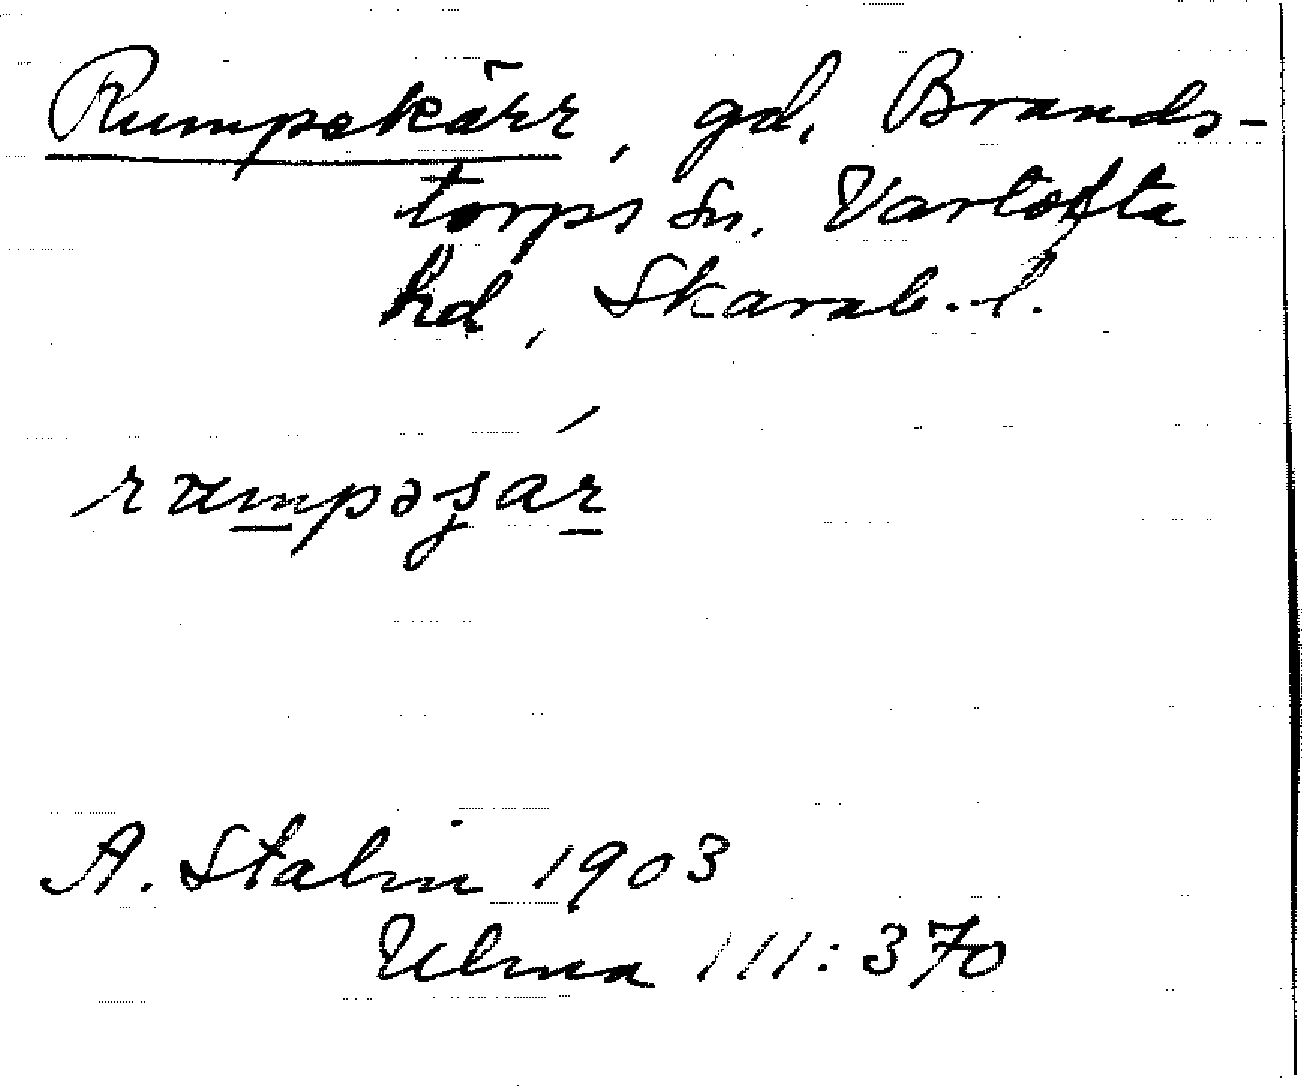 Rumpekärr, gd, Brands-
torps sn. Vartofta
hd, Skarab. l.
A. Stalin 1903
Ulma 111:370